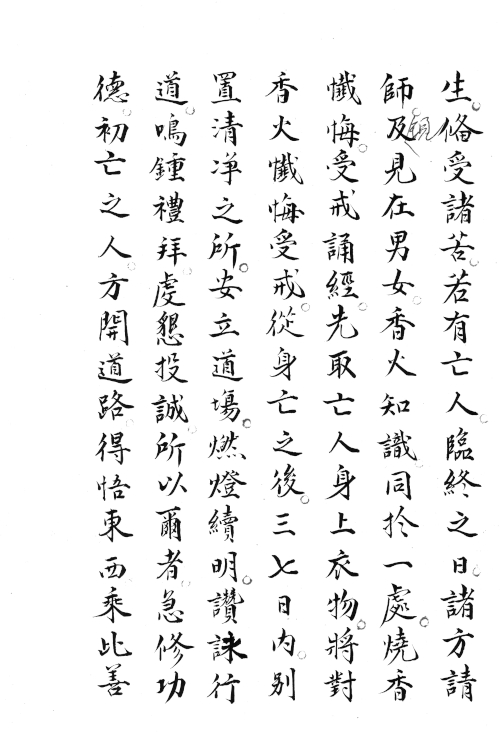 生。俻受諸苦。若有亡人。臨終之日。諸方請
師及見在男女。香火知識。同扵一處。燒香
懺悔。受戒誦經。先取亡人身上衣物。將對
香火懺悔受戒。從身亡之後。三七日内。別
置清淨之所。安立道場。燃燈續明。讚詠行
道。鳴鍾禮拜。虔懇投誠。所以爾者。急修功
德。初亡之人。方開道路。得悟東西。乘此善